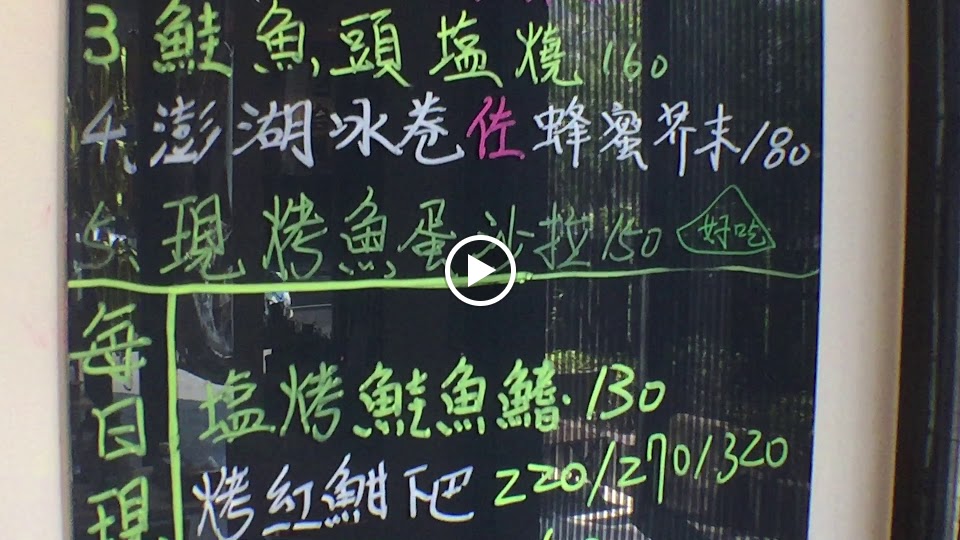 3、鮭魚頭塩燒 160
4、澎湖冰卷佐蜂蜜芥末/180
5、現烤魚蛋沙拉 150 好吃
每日現
塩烤鮭魚鰭 130
烤紅魽下巴 220/270/320